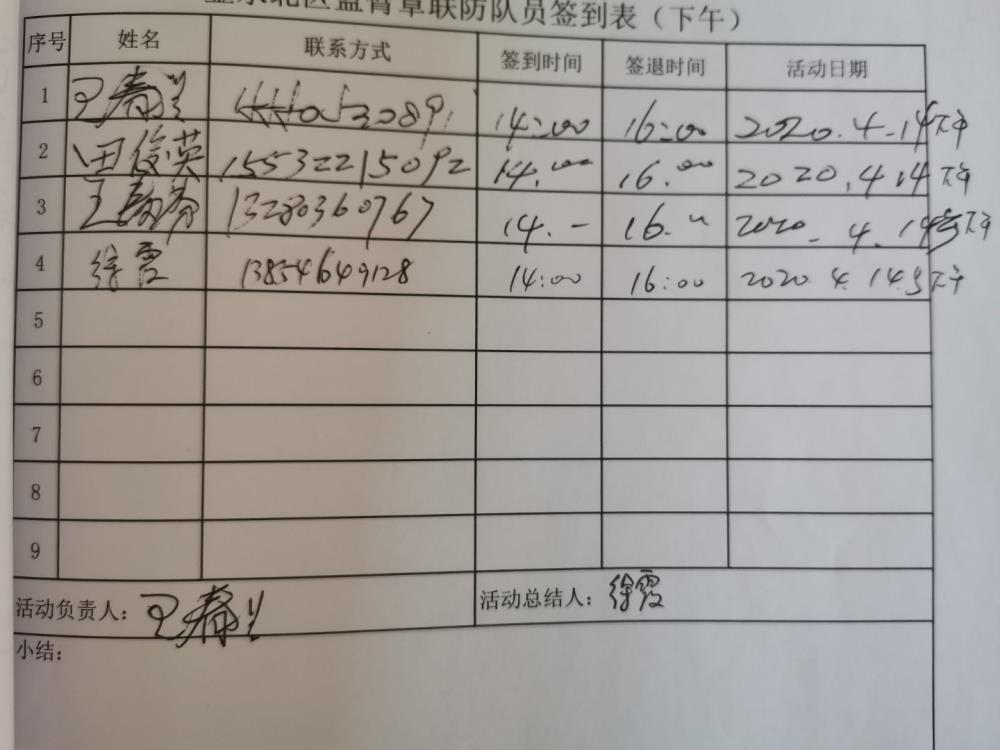 北区蓝臂章联防队员签到表（下午）
序号 姓名 联系方式 签到时间 签退时间 活动日期
1 王春兰 14:00 16:00 2020.4.14下午
2 田俊英 15532215092 14.00 16.00 2020.4.14下午
3 王 13280360767 14.- 16. 2020.4.14 下午
4 徐霞 13854649128 14:00 16:00 2020.4.14 下午
5
6
7
8
9
活动负责人：王春兰 活动总结人：徐霞
小结：